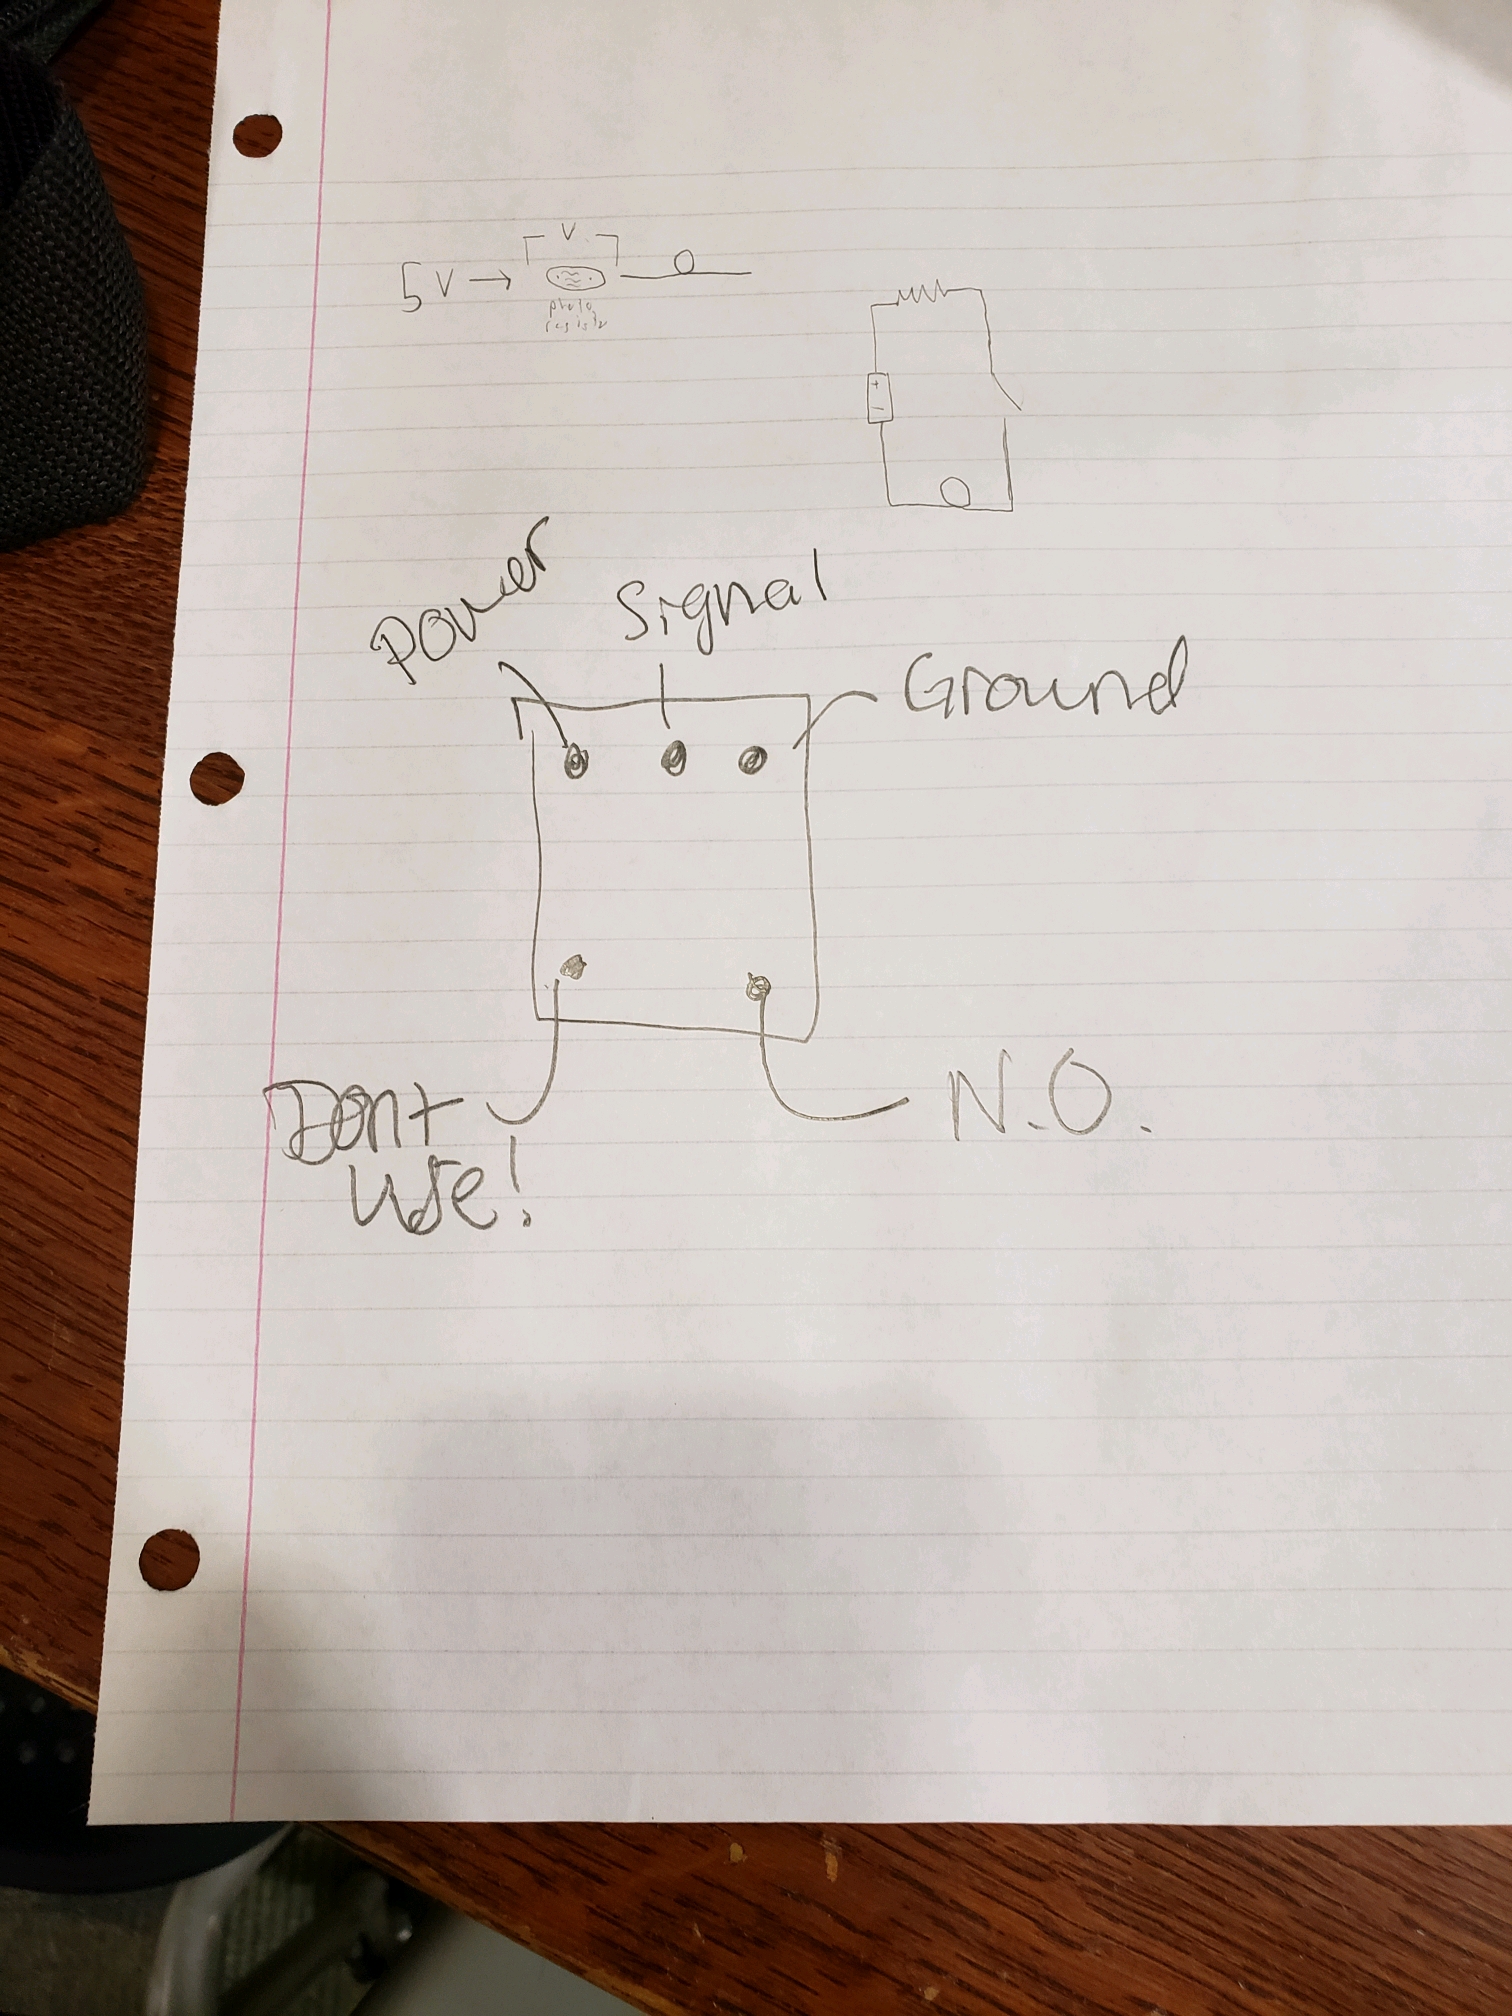 V
5V →
photo
resistr
+
-
Power
Signal
Ground
Dont
Use!
N.O.